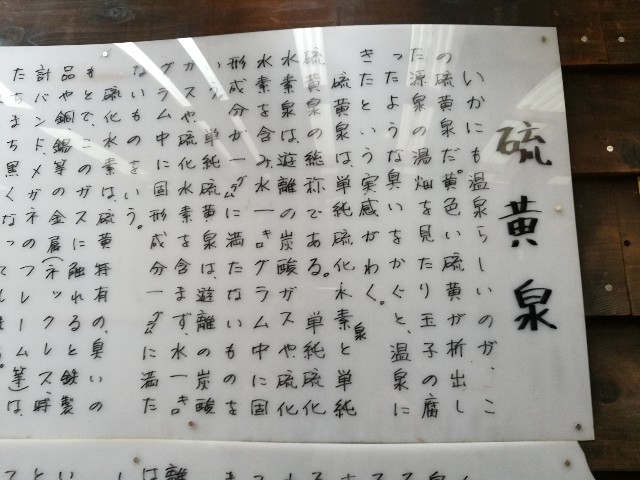 硫黄泉
いかにも温泉らしいのが、こ
の硫黄泉だ。黄色い硫黄が析出し
た源泉の湯畑を見たり玉子の腐
ったような臭いをかぐと、温泉に
きたという実感がわく。
硫黄泉は、単純硫化水素泉と単純
硫黄泉の総称である。単純硫化
水素泉は、遊離の炭酸ガスや硫化
水素を含み、水一キログラム中に固
形成分が一グラムに満たないものを
いう。単純硫黄泉は、遊離の炭酸
ガスや硫化水素を含まず、水一キロ
グラム中に固形成分一グラムに満た
ないものをいう。
硫化水素は、硫黄特有の、臭いの
もとで、このガスに触れると鉄製
品や銅、錫等の金属(ネックレス、時
計バンド、メガネのフレーム等)は、
たちまち黒くなってし